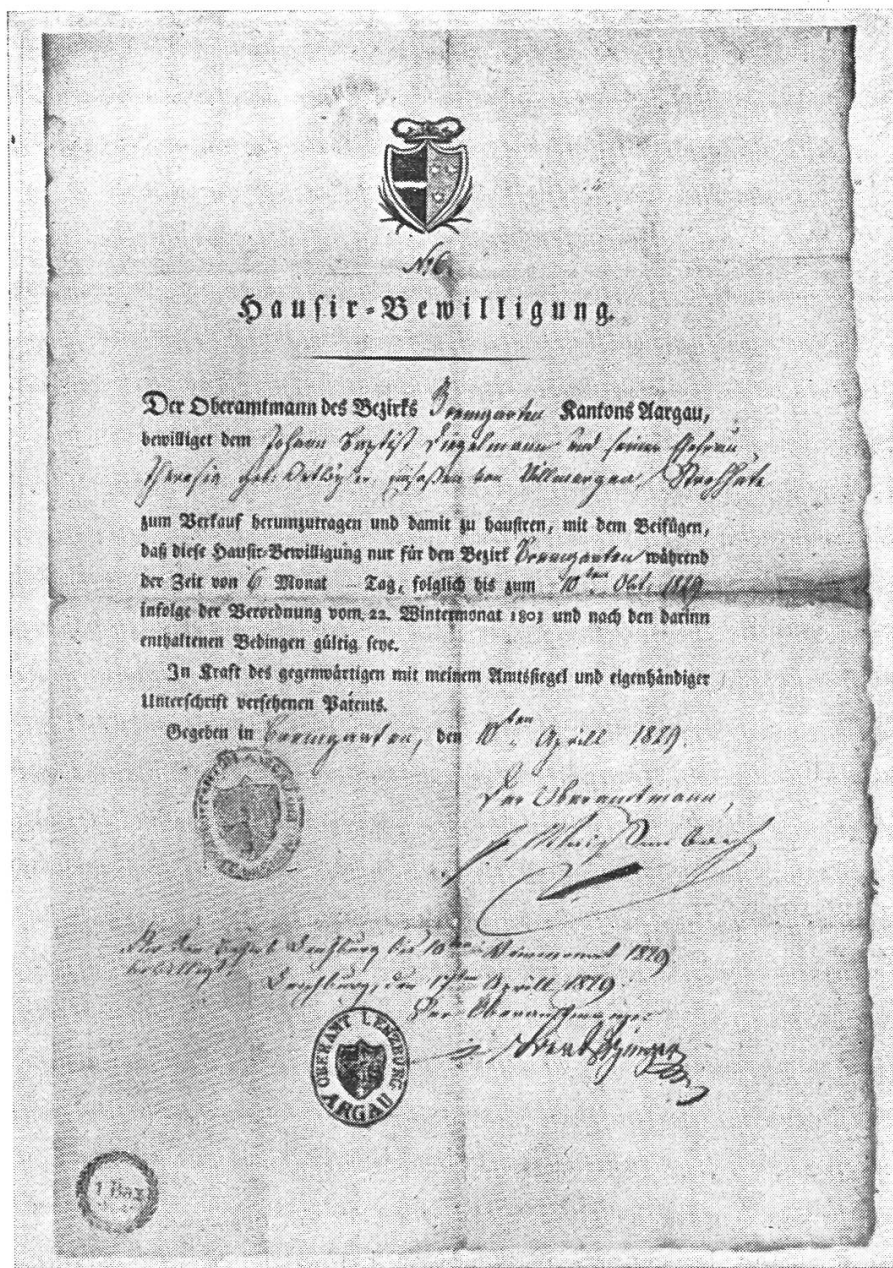 No 6.
Hausir-Bewilligung.
Der Oberamtmann des Bezirks Bremgarten Kantons Aargau,
bewilliget dem Johann Baptist und seiner Ehefrau
Theresia geb: von Villmergen, Strohhüte
zum Verkauf herumzutragen und damit zu hausiren, mit dem Beifügen,
daß diese Hausir-Bewilligung nur für den Bezirk Bremgarten während
der Zeit von 6 Monat — Tag, folglich bis zum 10ten Obt. 1829
infolge der Verordnung vom 22. Wintermonat 1803 und nach den darinn
enthaltenen Bedingen gültig seye.
In Kraft des gegenwärtigen mit meinem Amtssiegel und eigenhändiger
Unterschrift versehenen Patents.
Gegeben in Bremgarten, den 10ten Aprill 1829.
Der Oberamtmann,
Für den Bezirk Lenzburg bis 10ten Weinmonat 1829
bewilligt.
Lenzburg, den 17ten Aprill 1829.
Der Oberamtmann
OBERAMT LENZBURG
ARGAU
1 Baz